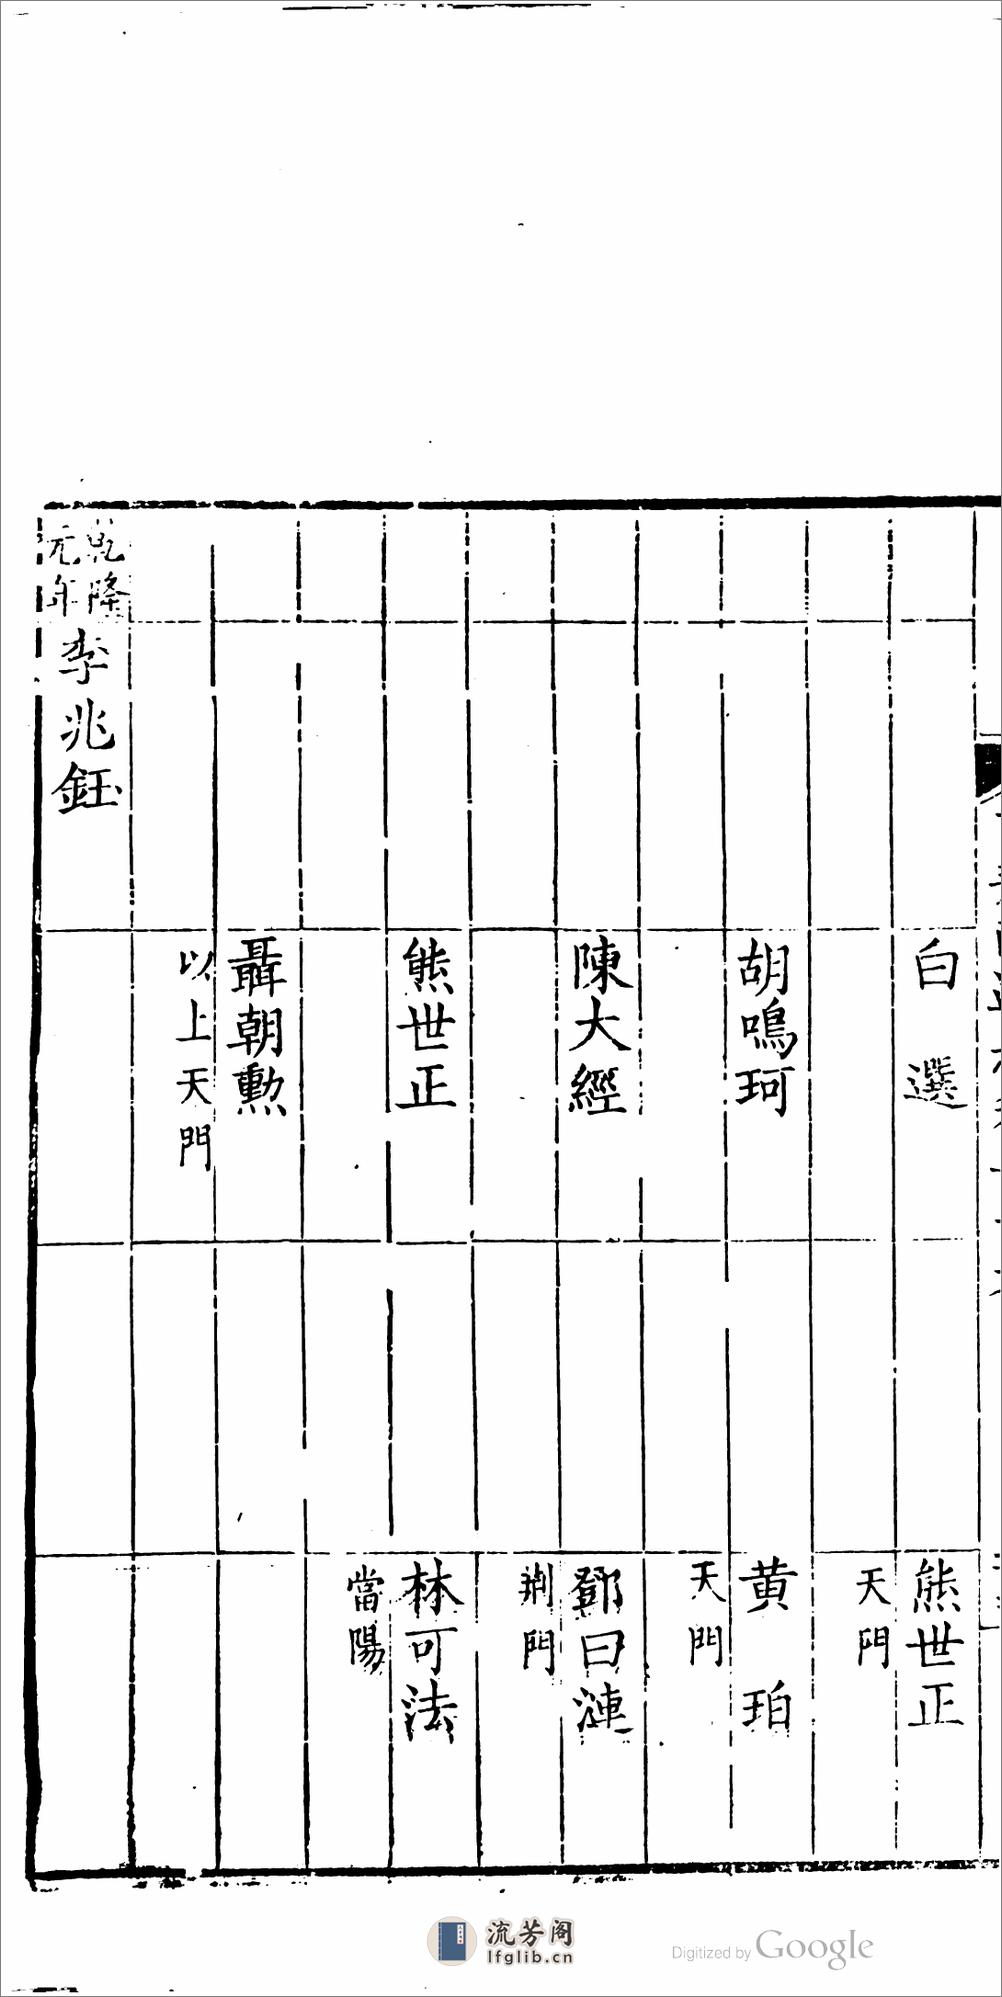 白選
熊世正
天門
胡鳴珂
黄珀
天門
陳大經
鄧曰漣
荆門
熊世正
林可法
當陽
聶朝勲
以上天門
乾隆
元年
李兆鈺
流芳阁
lfglib.cn
Digitized by Google